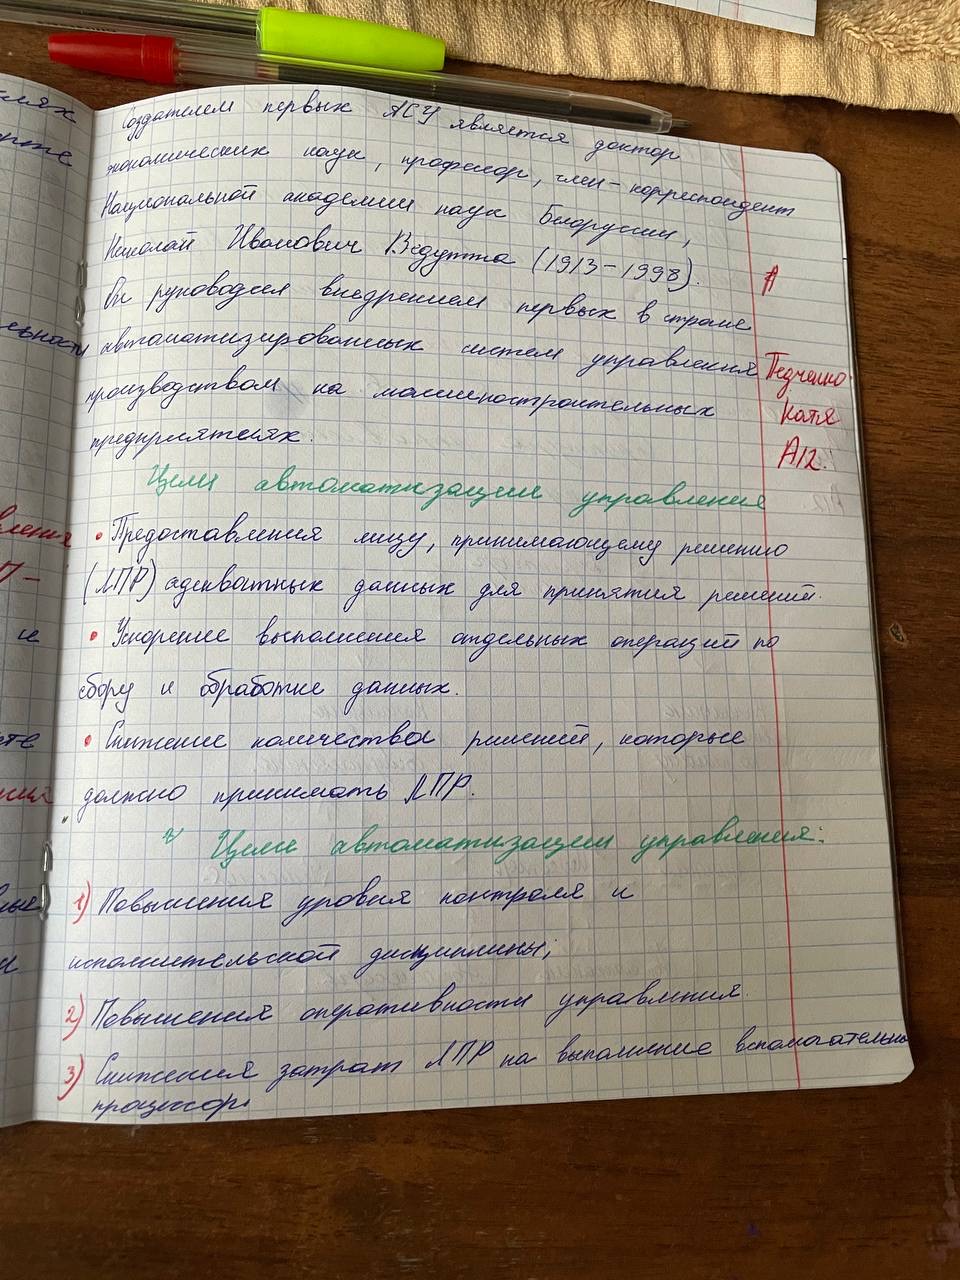 Создателем первых АСУ является доктор
экономических наук, професор, член-корреспондент
Национальной академии наук Белоруссии,
Николай Иванович Ведутта (1913-1998).
Он руководил внедрением первых в стране
автоматизированных систем управления
производством на машиностроительных
предприятиях.
А
Педченко
Катя
А12.
Цели автоматизации управления
• Предоставления лицу, принимающему решению
(ЛПР) адекватных данных для принятия решений.
• Ускорение выполнения отдельных операций по
сбору и обработке данных.
• Снижение количества решений, которые
должно принимать ЛПР.
Цели автоматизации управления:
1) Повышения уровня контроля и
исполнительской дисциплины;
2) Повышения оперативности управления.
3) Снижения затрат ЛПР на выполнение вспомогательны
процессор.